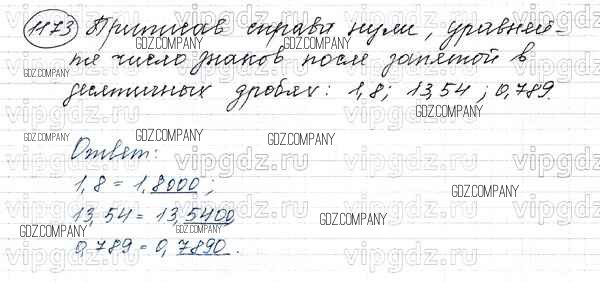 1173 Приписав справа нули, уравняй-
те число знаков после запятой в
десятичных дробях: 1,8; 13,54; 0,789.
Ответ:
1,8 = 1,8000;
13,54 = 13,5400
0,789 = 0,7890.
GDZ.COMPANY
vipgdz.ru